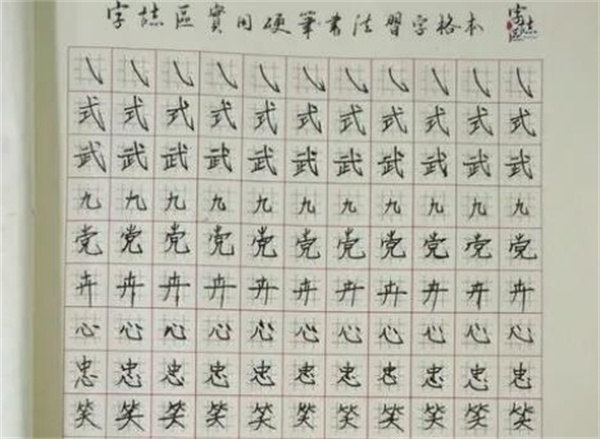 字喆區實用硬筆書法習字格本
字喆区
㇂㇂㇂㇂㇂㇂㇂㇂㇂㇂㇂
式式式式式式式式式式式
武武武武武武武武武武武
九九九九九九九九九九九
党党党党党党党党党党党
卉卉卉卉卉卉卉卉卉卉卉
心心心心心心心心心心心
忠忠忠忠忠忠忠忠忠忠忠
笑笑笑笑笑笑笑笑笑笑笑